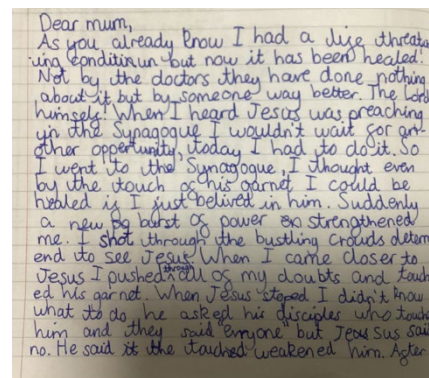 Dear mum,
As you already know I had a life threate
-ing conditinun but now it has been healed!
Not by the doctors they have done nothing
about it but by someone way better. The Lord
himself! When I heard Jesus was preaching
in the Synagogue I wouldn't wait for an-
other oppertunity, today I had to do it. So
I went to the Synagogue, I thought even
by the touch of his garnet, I could be
healed if I just belived in him. Suddenly
a new burst of power strengthened
me. I shot through the bustling crowds determ
end to see Jesus. When I came closer to
Jesus I pushed through all of my doubts and touch
ed his garnet. When Jesus stoped I didn't know
what to do he asked his disciples who touch
him and they said "enryone" but Jesus sus said
no. He said it the touched weakened him. After